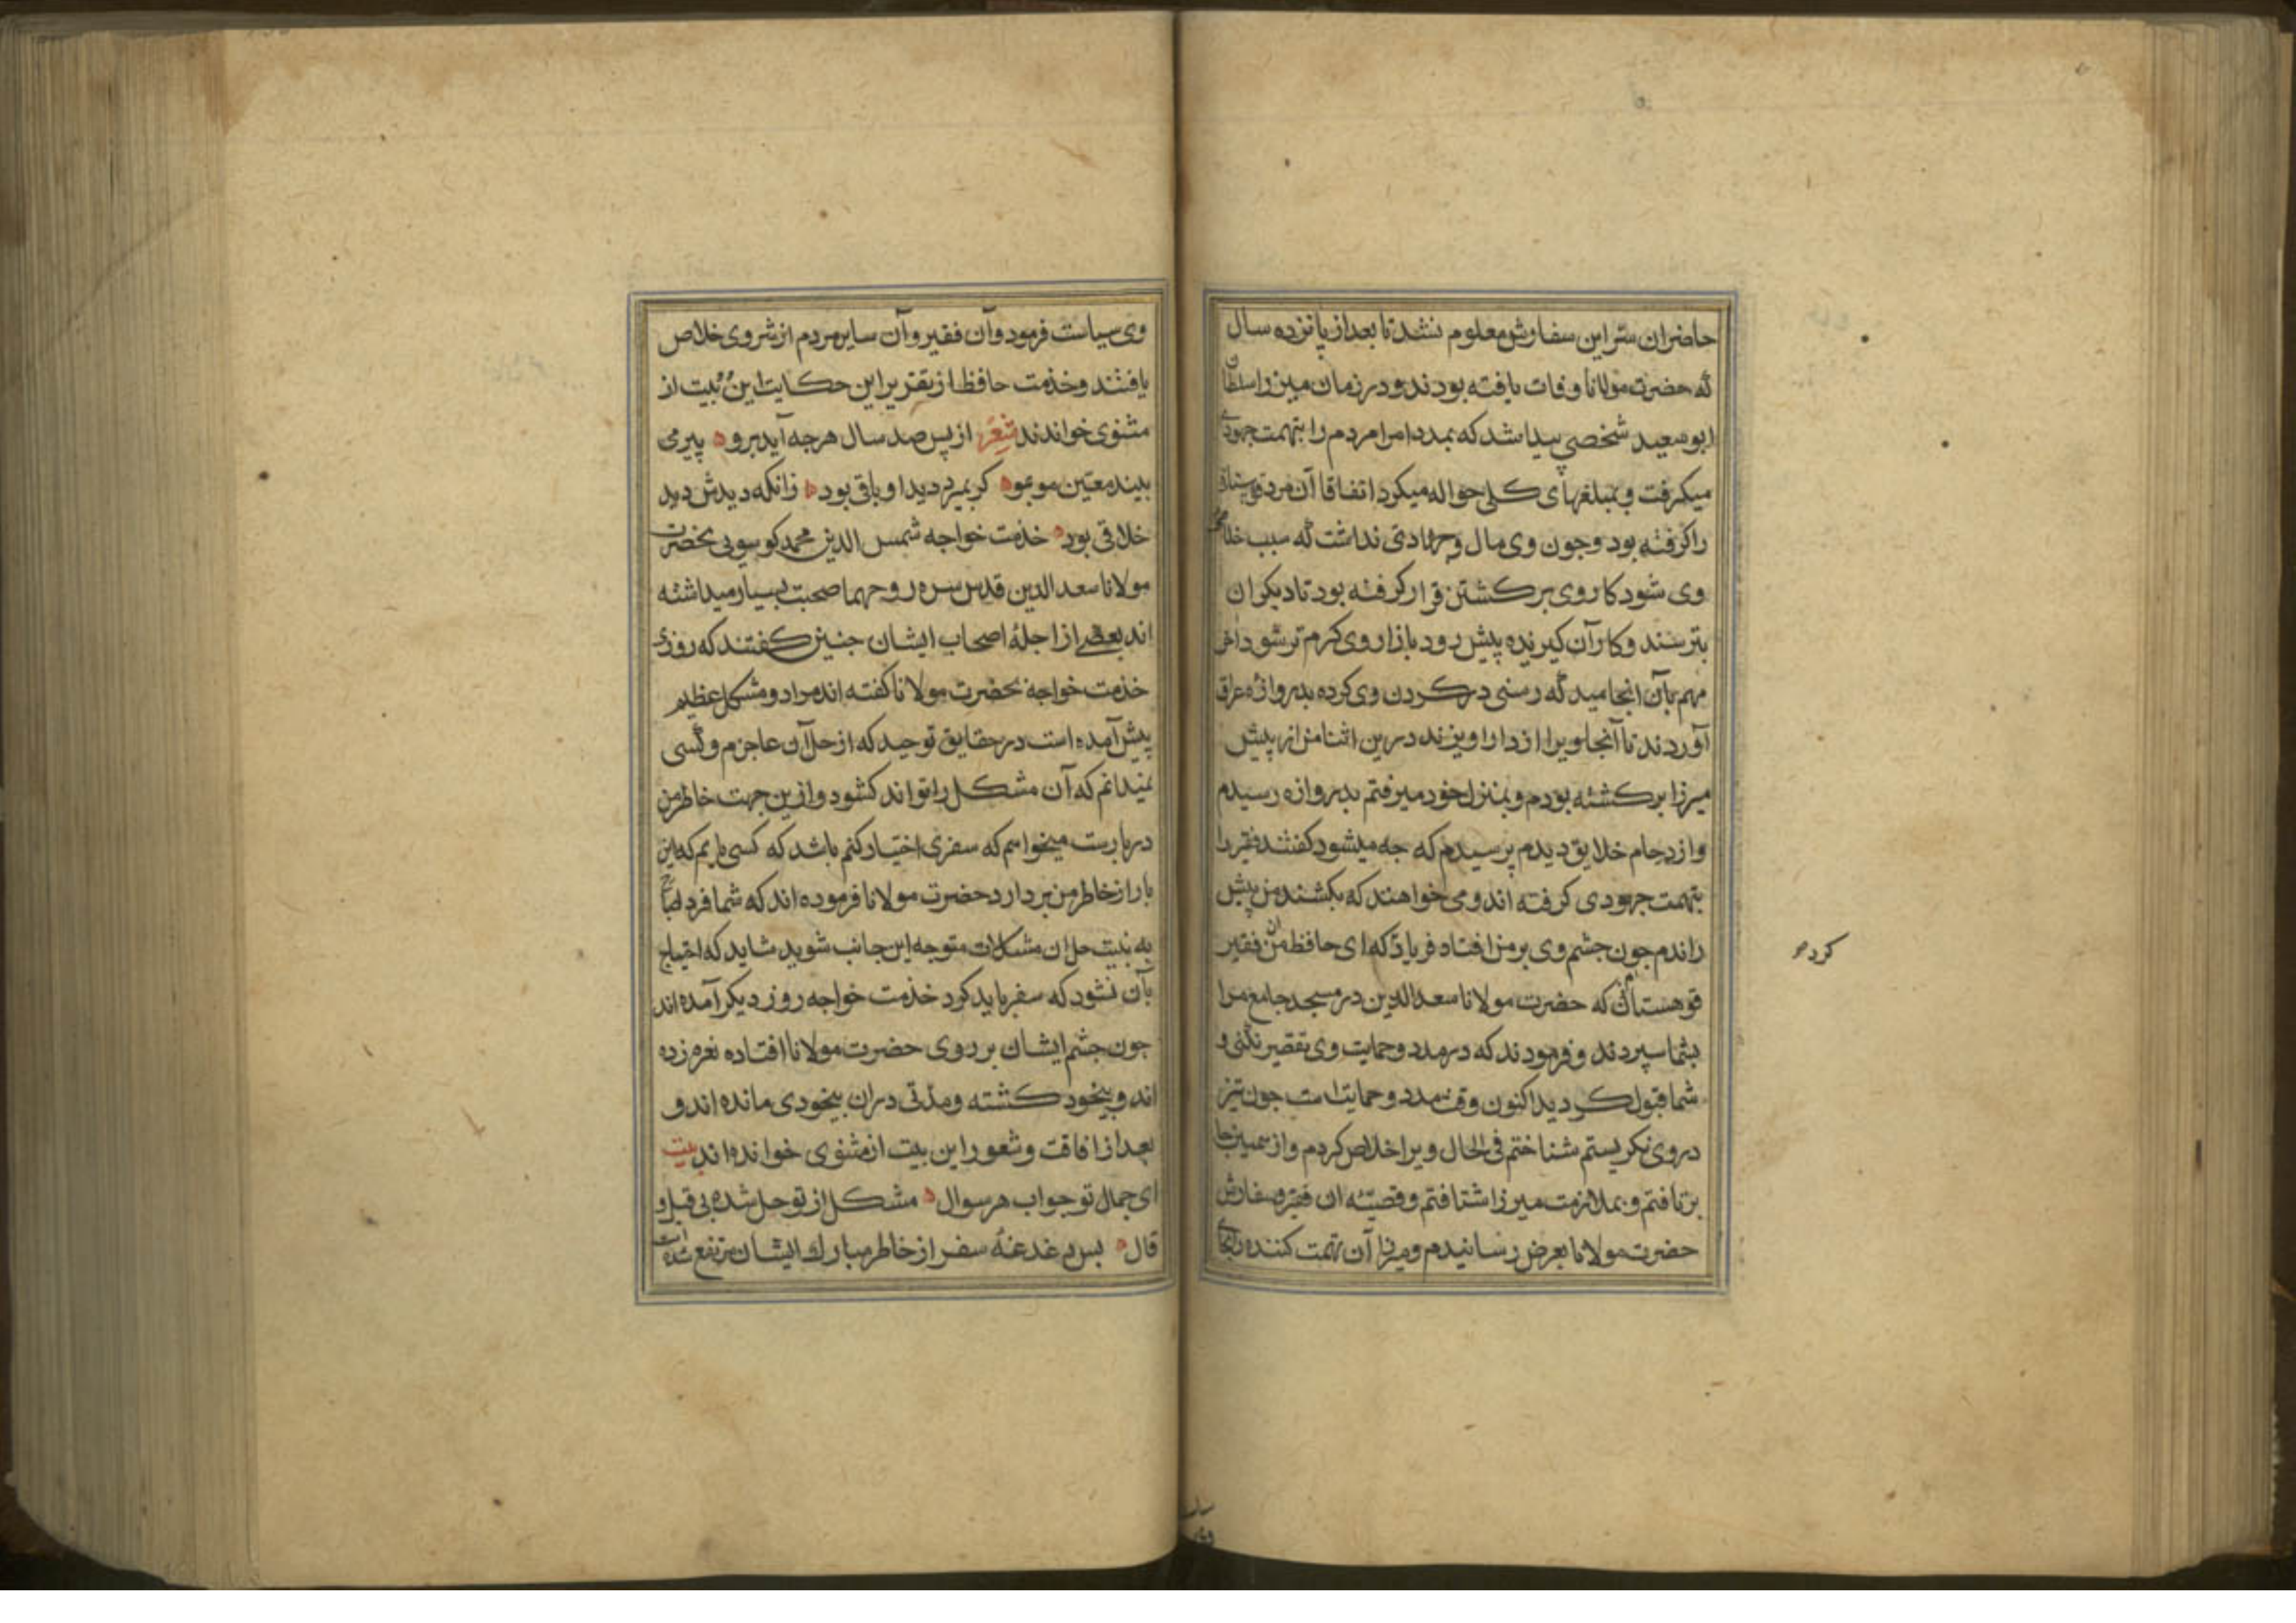 حاضران سر این سفارش معلوم نشد تا بعد از پانزده سال
که حضرت مولانا وفات یافته بودند و در زمان میرزا سلطان
ابو سعید شخصی پیدا شد که بمدد امرا مردم را بتهمت جهودی
میکرفت و بمبلغهای کلی حواله میکرد اتفاقا آن مرد قوهستانی
را کرفته بود و جون وی مال و جهاداتی نداشت که سبب خلاص
وی شود کار وی بر کشتن قرار کرفته بود تا دیکران
بترسند و کار آن کیرنده پیش رود بازار وی کرم تر شود آخر
مهم بآن انجامید که رسنی در کردن وی کرده بدروازه عراق
آوردند تا آنجا ویرا از دار اویزند درین اثنا من از پیش
میرزا برکشته بودم و بمنزل خود میرفتم بدروازه رسیدم
و ازدحام خلایق دیدم پرسیدم که جه میشود کفتند فقیر را
بتهمت جهودی کرفته اند و می خواهند که بکشند من پیش
راندم جون جشم وی بر من افتاد فریاد که ای حافظ من آن فقیر
کرد
قوهستانی ام که حضرت مولانا سعد الدین در مسجد جامع مرا
بشما سپردند و فرمودند که در مدد و حمایت وی تقصیر نکنی و
شما قبول کردید اکنون وقت مدد و حمایت است جون تیز
در وی نکریستم شناختم فی الحال ویرا خلاص کردم و از همین جا
برتافتم و بملازمت میرزا شتافتم و قصه ان فقیر و سفارش
حضرت مولانا بعرض رسانیدم و میرزا آن تهمت کننده را بجای
وی سیاست فرمود و آن فقیر و آن سایر مردم از شر وی خلاص
یافتند و خدمت حافظ از تقریر این حکایت این دو بیت از
مثنوی خواندند شعر از پس صد سال هرجه آید برو پیر می
بیند معین مو بمو کر بمیرد دید او باقی بود زانکه دیدش دید
خلاقی بود خدمت خواجه شمس الدین محمد کوسویی بحضرت
مولانا سعد الدین قدس سره روحهما صحبت بسیار میداشته
اند بعضی از اجله اصحاب ایشان جنین کفتند که روزی
خدمت خواجه بحضرت مولانا کفته اند مرا دو مشکل عظیم
پیش آمده است در حقایق توحید که از حل آن عاجزم و کسی
نمیدانم که آن مشکل را تواند کشود و ازین جهت خاطر من
در بارست میخواهم که سفری اختیار کنم باشد که کسی یابم که این
بار از خاطر من بردارد حضرت مولانا فرموده اند که شما فردا صباح
به نیت حل ان مشکلات متوجه این جانب شوید شاید که احتیاج
بآن نشود که سفر باید کرد خدمت خواجه روز دیکر آمده اند
جون جشم ایشان بر روی حضرت مولانا افتاده نعره زده
اند و بیخود کشته و مدتی دران بیخودی مانده اند و
بعد از افاقت و شعور این بیت از مثنوی خوانده اند بیت
ای جمال تو جواب هر سوال مشکل از تو حل شده بی قیل و
قال بس دغدغه سفر از خاطر مبارك ایشان مرتفع شده است